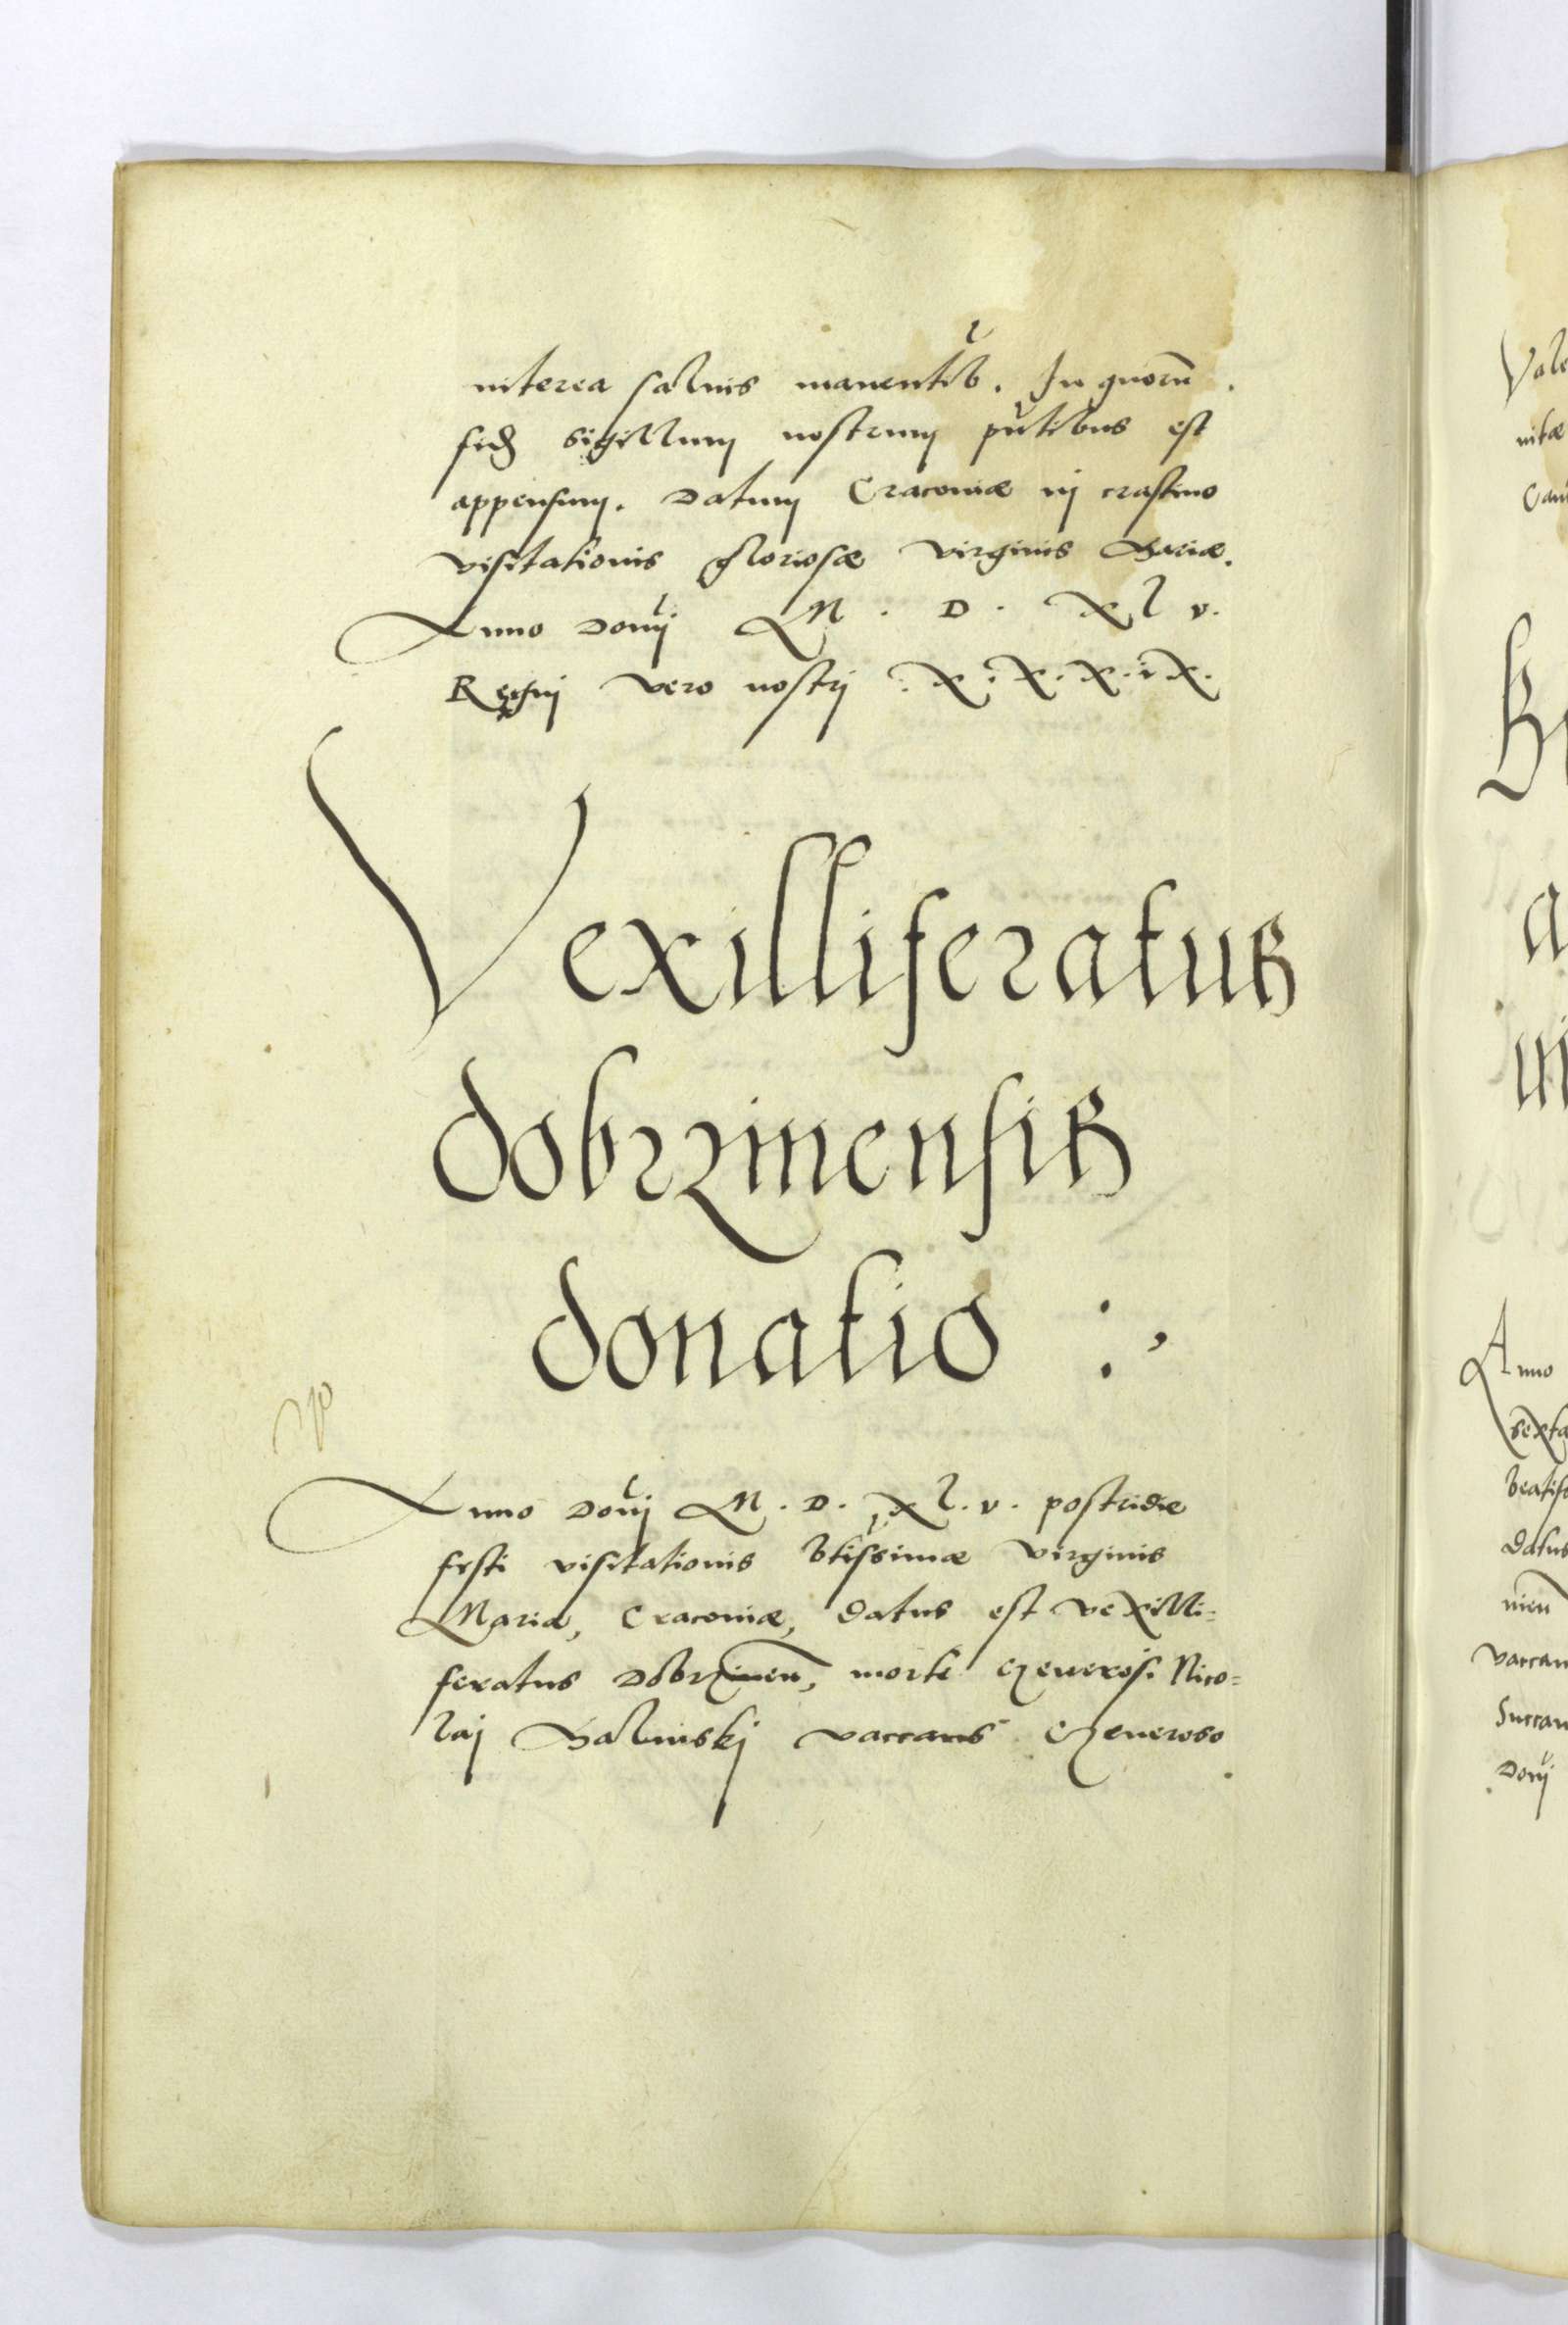 interea salvis manentib. In quorũ
fidẽ sigillum nostrum pñtibus est
appensum. Datum Cracoviæ in crastino
visitationis gloriosæ virginis Mariæ.
Anno Domi M. D. Xl v.
Regni vero nostri .X.X.X.iX.
Vexilliferatus
dobrzinensis
donatio :,
Anno Domi M. D. Xl. v. postridie
festi visitationis Btissimæ virginis
Mariæ, Cracoviæ, datus est vexilli=
feratus Dobrzineñ, morte Generosi Nico=
laj vaccans Generoso